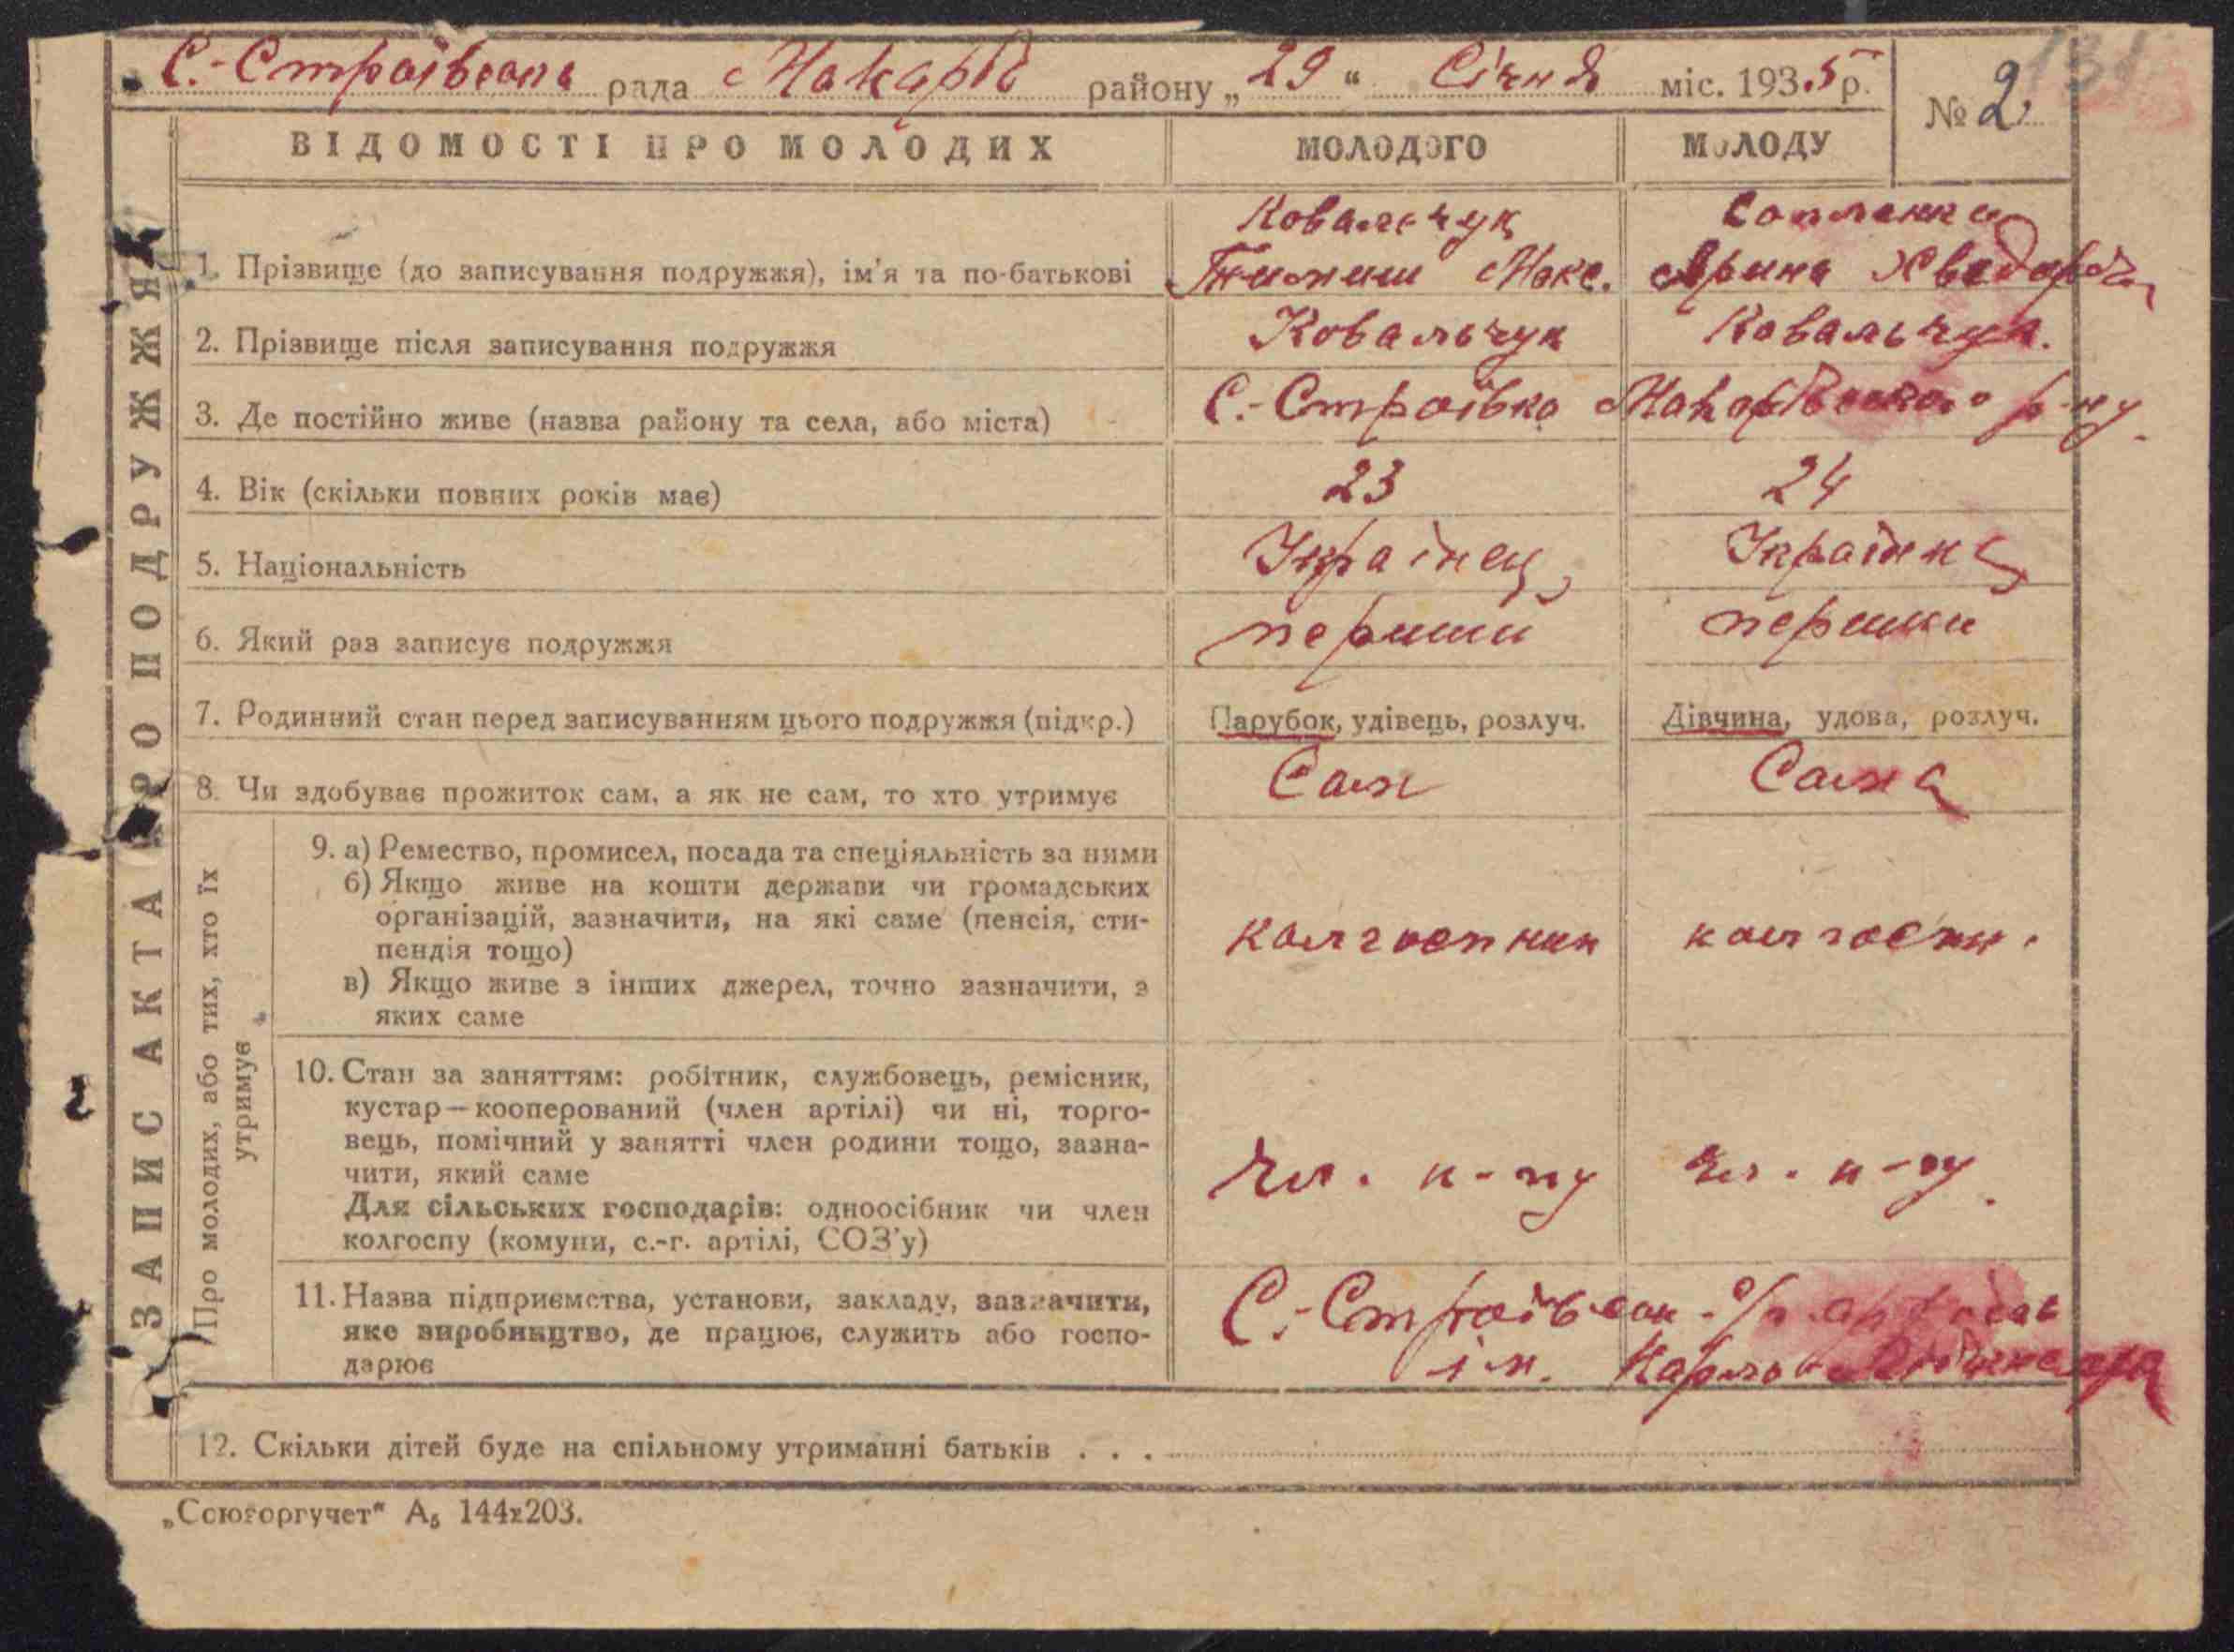 С.-Строївська рада Макарів району „29“ Січня міс. 193.5 р.
№ 2
131
ВІДОМОСТІ ПРО МОЛОДИХ
МОЛОДОГО
МОЛОДУ
ЗАПИС АКТА ПРО ПОДРУЖЖЯ
1. Прізвище (до записування подружжя), ім'я та по-батькові
Ковальчук
Макс.
Арина Хведорів.
2. Прізвище після записування подружжя
Ковальчук
Ковальчук.
3. Де постійно живе (назва району та села, або міста)
С.-Строївка Макарівського р-ну.
4. Вік (скільки повних років має)
23
24
5. Національність
Українец
Українка
6. Який раз записує подружжя
перший
перший
7. Родинний стан перед записуванням цього подружжя (підкр.)
Парубок, удівець, розлуч.
Дівчина, удова, розлуч.
8. Чи здобуває прожиток сам, а як не сам, то хто утримує
Сам
Сама
Про молодих, або тих, хто їх
утримує
9. а) Ремество, промисел, посада та спеціяльність за ними
б) Якщо живе на кошти держави чи громадських
організацій, зазначити, на які саме (пенсія, сти-
пендія тощо)
в) Якщо живе з інших джерел, точно зазначити, з
яких саме
колгоспник
колгоспн.
10. Стан за заняттям: робітник, службовець, ремісник,
кустар—кооперований (член артілі) чи ні, торго-
вець, помічний у занятті член родини тощо, зазна-
чити, який саме
Для сільських господарів: одноосібник чи член
колгоспу (комуни, с.-г. артілі, СОЗ'у)
чл. к-пу
чл. к-пу.
11. Назва підприємства, установи, закладу, зазначити,
яке виробництво, де працює, служить або госпо-
дарює
С.-Строївськ. с/г артіль
ім. Карла
12. Скільки дітей буде на спільному утриманні батьків . . .
„Союзоргучет“ А₅ 144х203.